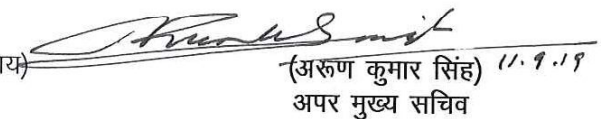 य)
(अरूण कुमार सिंह) 11.9.19
अपर मुख्य सचिव